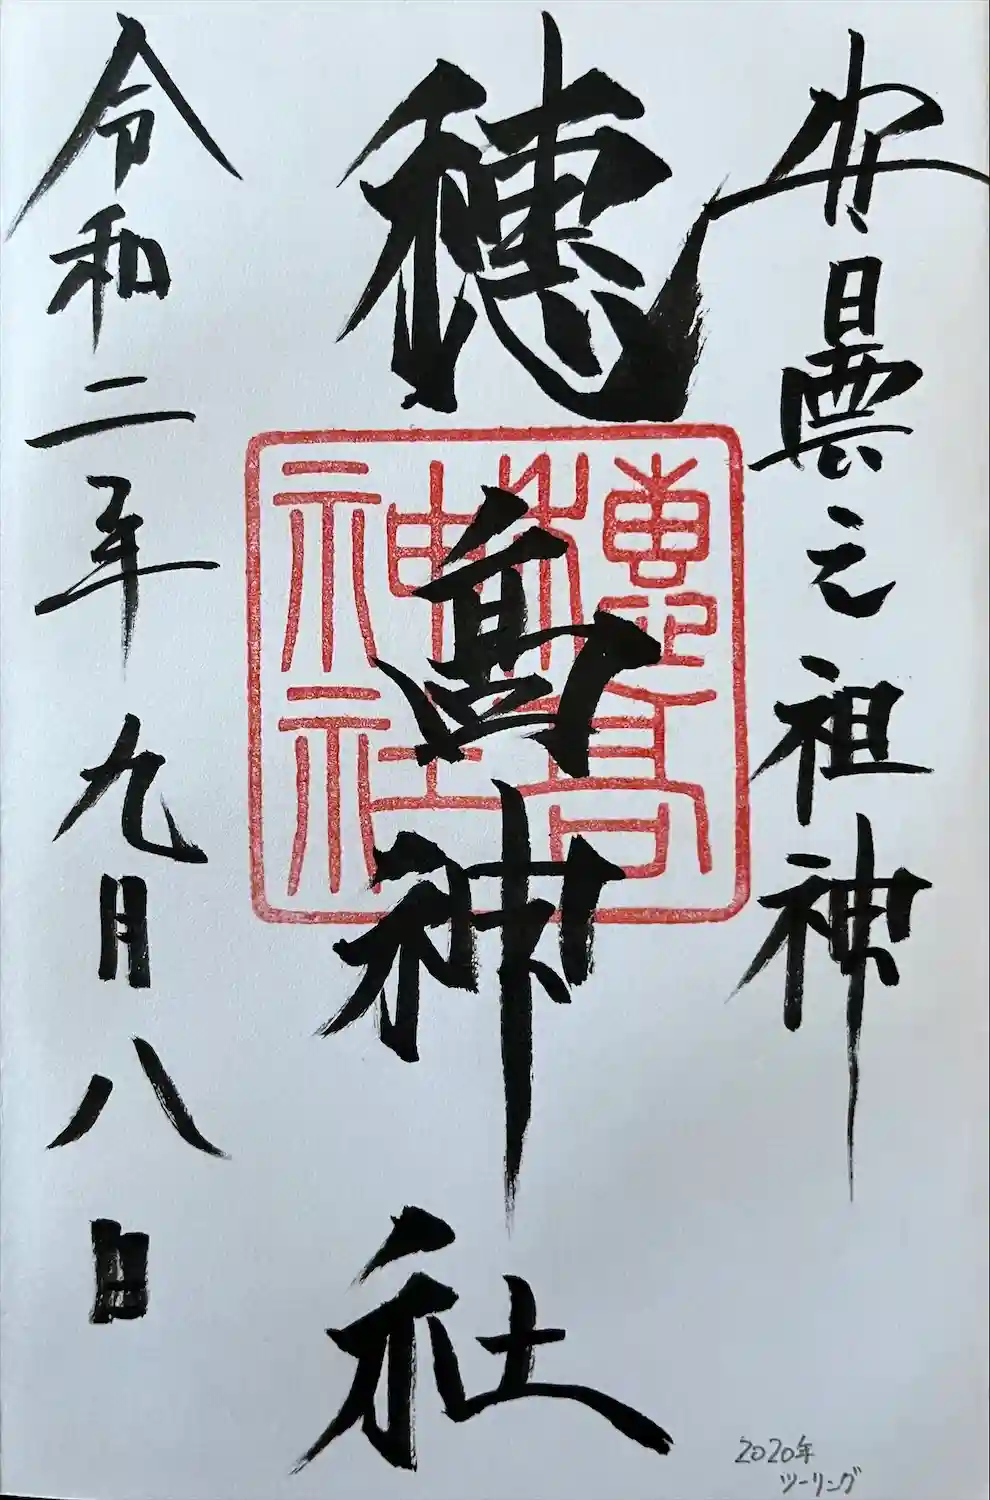 安曇之祖神
穂高神社
穂高神社
令和二年九月八日
2020年
ツーリング